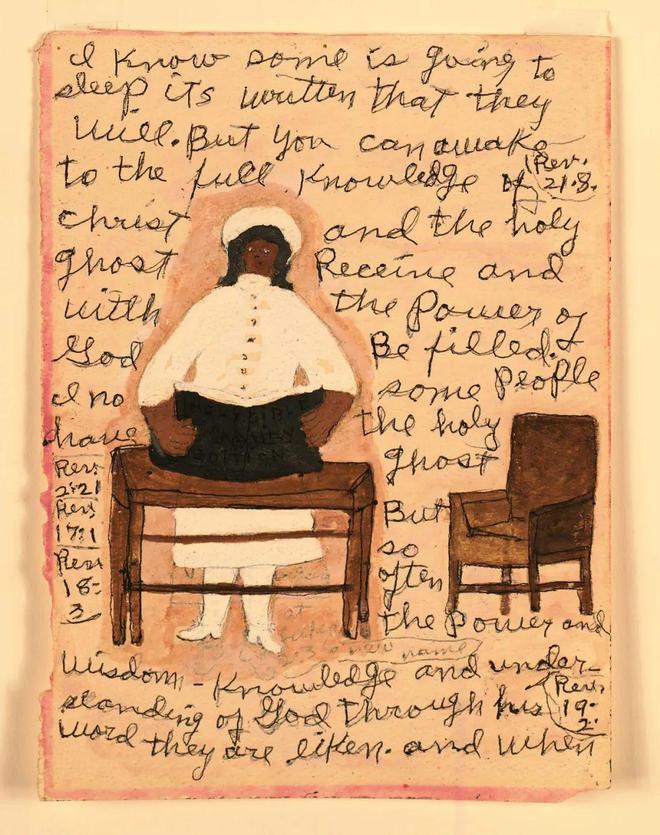 I Know some is going to
sleep its written that they
Will. But you can awake
to the full Knowledge of (Rev. 21.8.
Christ and the holy
ghost Receive and
with the Power of
God Be filled.
I no some People
have the holy
ghost
But
so
often
the Power and
Rev.
2:21
Rev.
17:1
Rev.
18:
3
HOLY BIBLE
EDITION
2:3 a new name
Wisdom - Knowledge and under-
standing of God through his (Rev. 19. 2.
word they are liken. and when